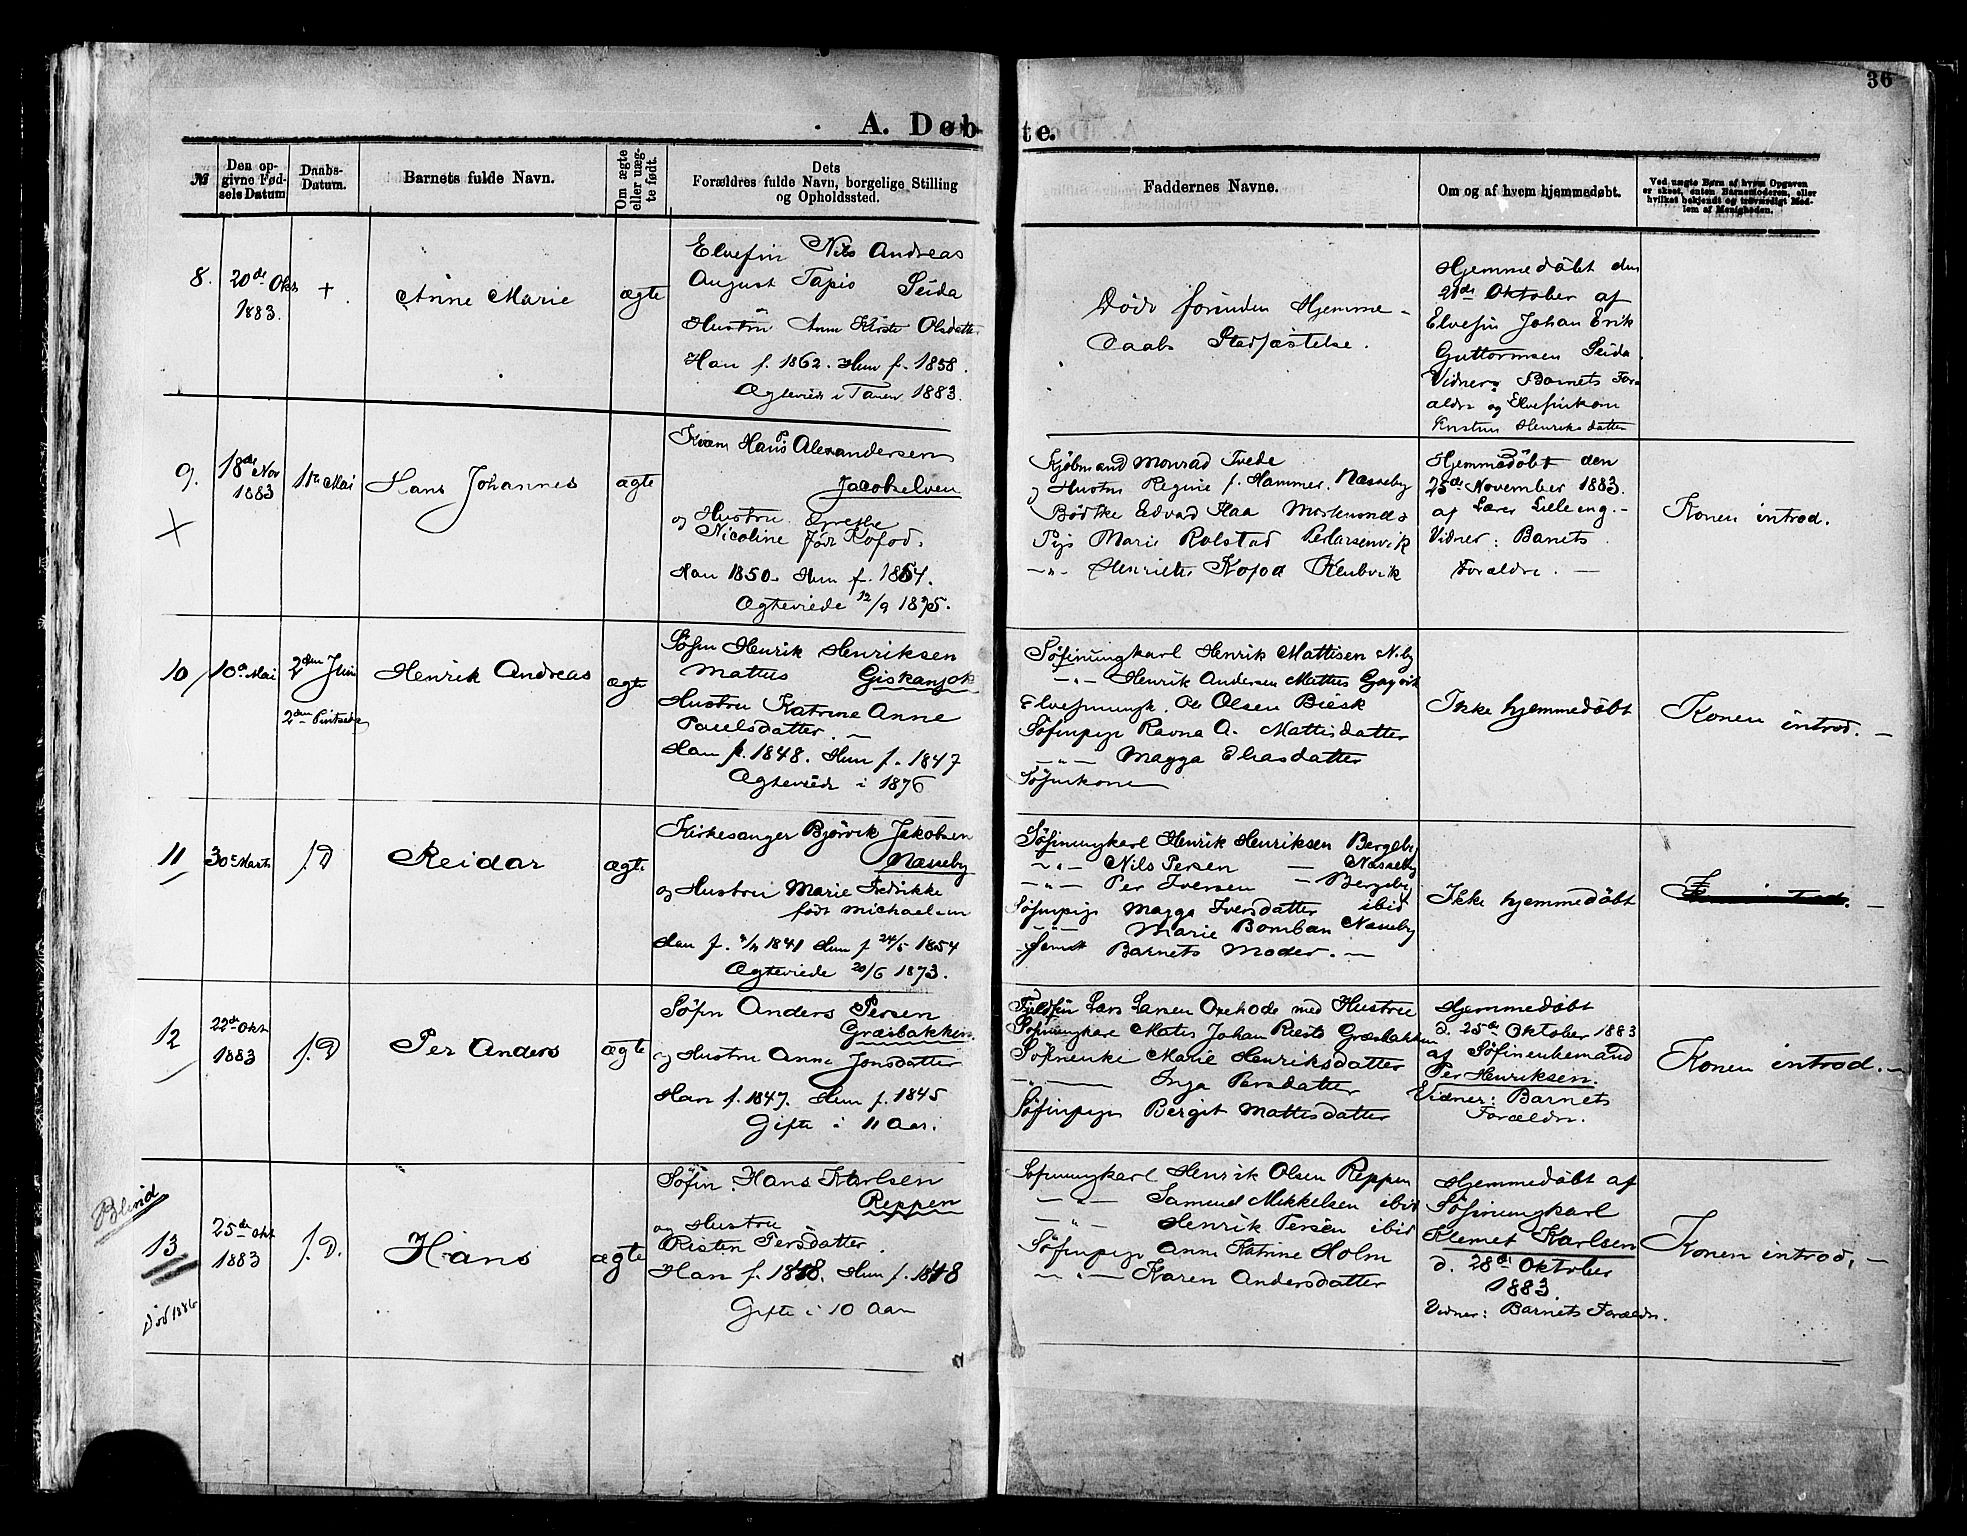 36
A. Døbte.
№
Den opgivne Fødsels Datum
Daabs-Datum.
Barnets fulde Navn.
Om ægte eller uægte født.
Dets
Forældres fulde Navn, borgelige Stilling
og Opholdssted.
Faddernes Navne.
Om og af hvem hjemmedøbt.
Ved uægte Børn af hvem Opgaven
er skeet, enten Barnemoderen, eller
hvilket bekjendt og troværdigt Med-
lem af Menigheden.
8.
20de Okt
1883.
+
Anne Marie
ægte
Elvefin Nils Andreas
August Tapio Seida
Hustru Anne Kirste Olsdatter
Han f. 1862. Hun f. 1858.
Ægteviede i Tanen 1883.
Døde forinden Hjemme-
daabs Stadfæstelse.
Hjemmedøbt den
21de Oktober af
Elvefin Johan Erik
Guttormsen Seida.
Vidner: Barnets For-
ældre og Elvefinkone
Kristine Henriksdatter
9.
18de Nov
1883
Mai
Hans Johannes
ægte
Kvæn Hans P. Alexandersen
Jacobselven
og Hustru Grethe
Nicoline født Kofod.
Han 1850. Hun f. 1854.
Ægteviede 12/9 1875.
Kjøbmand Monrad Tvede
og Hustru Regine f. Hammer. Næsseby
Bødtke Edvard Haa
Pige Marie Rolstad Perlarsenvik
-"- Henriette Kofod
Hjemmedøbt den
25de November 1883.
af Lærer Lilleeng.-
Vidner: Barnets
Forældre. -
Konen introd.
10
10de Mai
2den Juni
2den Pintsedag
Henrik Andreas
ægte
Søfin Henrik Henriksen
Mattus Giskanjok
Hustru Katrine Anne
Paulsdatter. -
Han f. 1848. Hun f. 1847
Ægteviede i 1876
Søfinungkarl Henrik Mattisen N.by
-"- Henrik Andersen Mattus
Elvefinungk. Ole Olsen Biesk
Søfinpige Ravna A. Mattisdatter
-"- Magga Eliasdatter
Søfinkone
Ikke hjemmedøbt
Konen introd. -
11
30te Marts
s. D
Reidar
ægte
Kirkesanger Bjørvik Jakobsen
Næsseby
og Hustru Marie Fredrikke
født Michaelsen
Han f. 1841 Hun f 24/5 1854
Ægteviede 20/6 1873.
Søfinungkarl Henrik Henriksen Bergeby
-"- Nils Persen - Næsseby
-"- Per Iversen - Bergeby
Søfinpige Magga Iversdatter ibid
-"- Marie Bomban Næsseby
Samt Barnets Moder. -
Ikke hjemmedøbt
12
22de Okt
1883
s. D
Per Anders
ægte
Søfin Anders Persen
Græsbakken
og Hustru Anne Jonsdatter
Han f. 1847. Hun f. 1845
Gifte i 11 Aar.
Fjeldfin Lars Larsen Ovehode med Hustru
Søfinungkarl Matis Johan Riesto Græsbakken
Søfinenke Marie Henriksdatter
-"- Inga Persdatter
Søfinpige Bergit Mattisdatter
Hjemmedøbt
d. 25de Oktober 1883
af Søfinenkemand
Per Henriksen.
Vidner: Barnets
Forældre.
Konen introd. -
Blind
13
Død 1886
25de Okt
1883
s. D.
Hans
ægte
Søfin Hans Karlsen
Reppen
og Hustru
Risten Persdatter.
Han f. 1848. Hun f. 1848
Gifte i 10 Aar
Søfinungkarl Henrik Olsen Reppen
-"- Samuel Mikkelsen ibid
-"- Henrik Persen ibid
Søfinpige Anne Katrine Holm
-"- Karen Andersdatter
Hjemmedøbt af
Søfinungkarl
Klemet Karlsen
d. 28de Oktober
1883.
Vidner: Barnets Forældre.
Konen introd. -